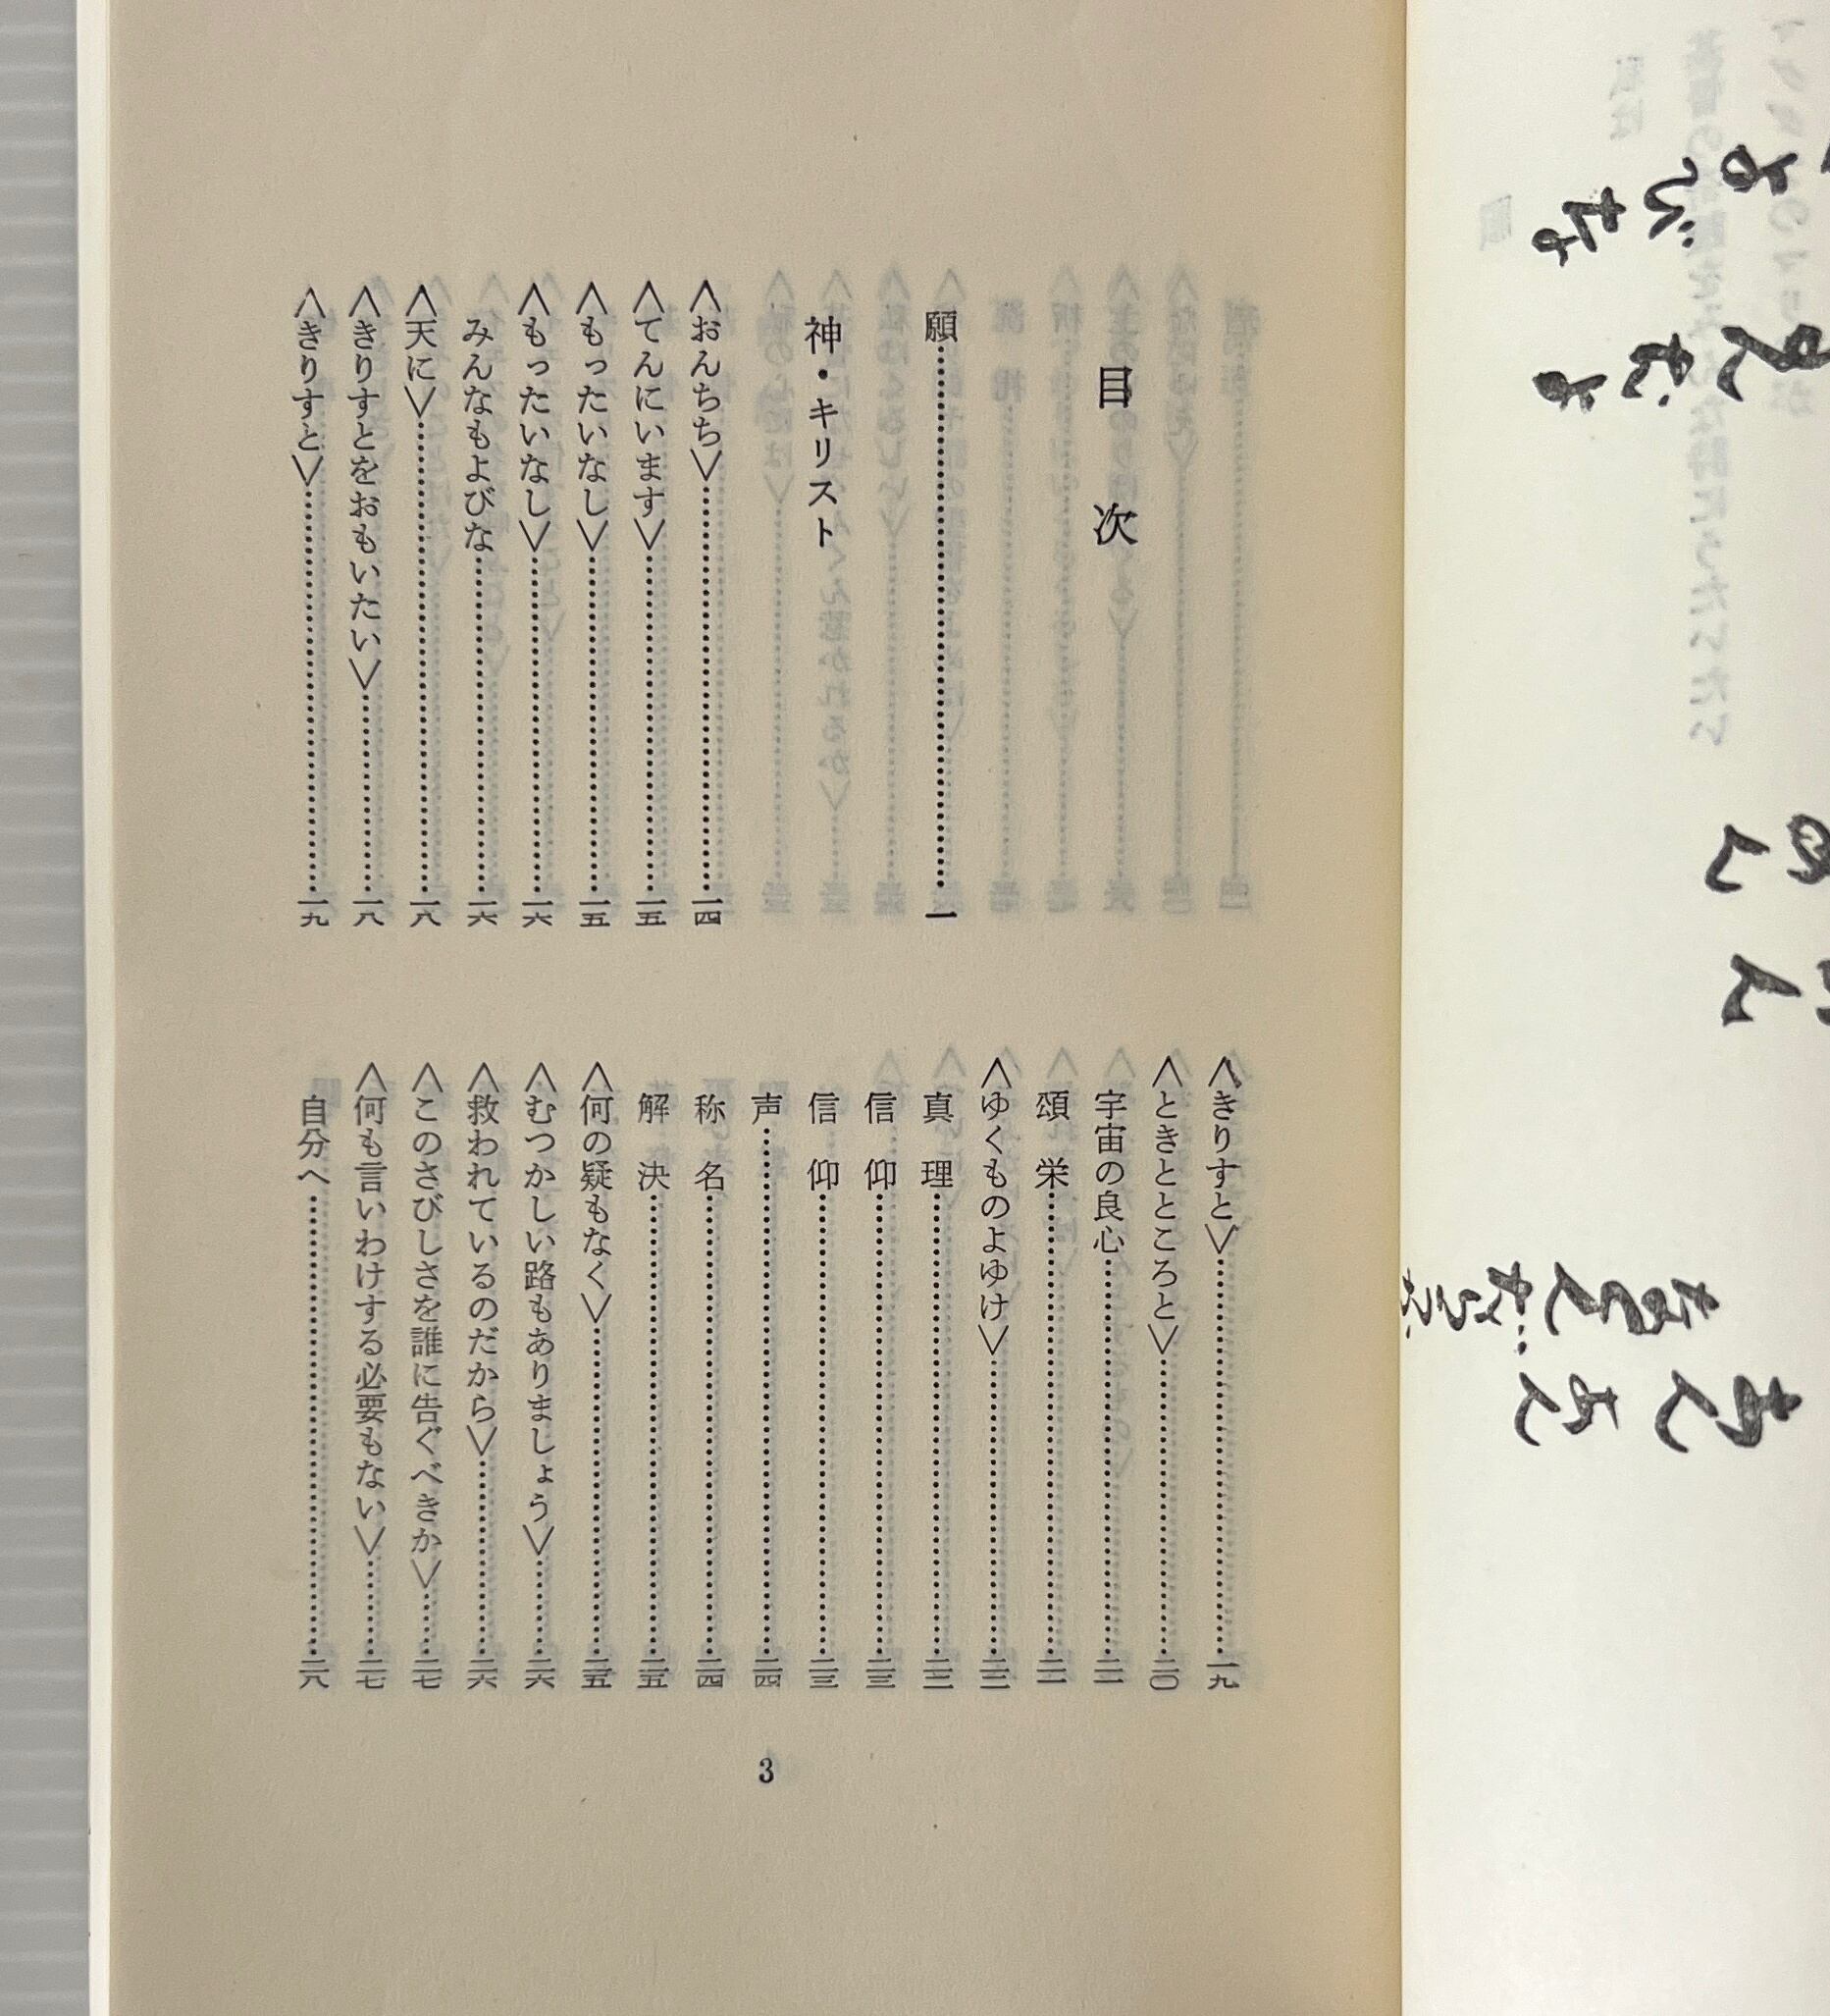 目次
願……………一
神・キリスト
〈おんちち〉……………一四
〈てんにいます〉……………一五
〈もったいなし〉……………一五
〈もったいなし〉……………一六
みんなもよびな……………一六
〈天に〉……………一八
〈きりすとをおもいたい〉……………一八
〈きりすと〉……………一九
〈きりすと〉……………一九
〈ときとところと〉……………二〇
宇宙の良心……………二一
頌栄……………二一
〈ゆくものよゆけ〉……………二二
真理……………二二
信仰……………二三
信仰……………二三
声……………二四
称名……………二四
解決……………二五
〈何の疑もなく〉……………二五
〈むつかしい路もありましょう〉……………二六
〈救われているのだから〉……………二六
〈このさびしさを誰に告ぐべきか〉……………二七
〈何も言いわけする必要もない〉……………二七
自分へ……………二八
3